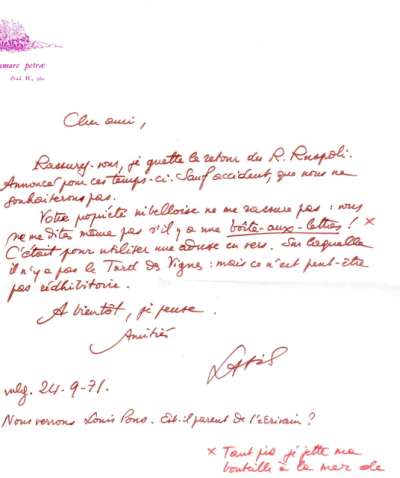 amare petræ
Cher ami,
Rassurez-vous, je guette le retour du R. Ruspoli.
Annoncé pour ces temps-ci. Sauf accident, que nous ne
souhaiterons pas.
Votre propriété nibelloise ne me rassure pas : vous
ne me dites même pas s'il y a une boîte-aux-lettres ! ×
C'était pour utiliser une adresse en vers. Sur laquelle
il n'y a pas le Tard des Vignes : mais ce n'est peut-être
pas rédhibitoire.
A bientôt, je pense.
Amitiés
Latis
vulg. 24-9-71.
Nous verrons Louis Pons. Est-il parent de l'écrivain ?
× Tant pis je jette ma
bouteille à la mer de